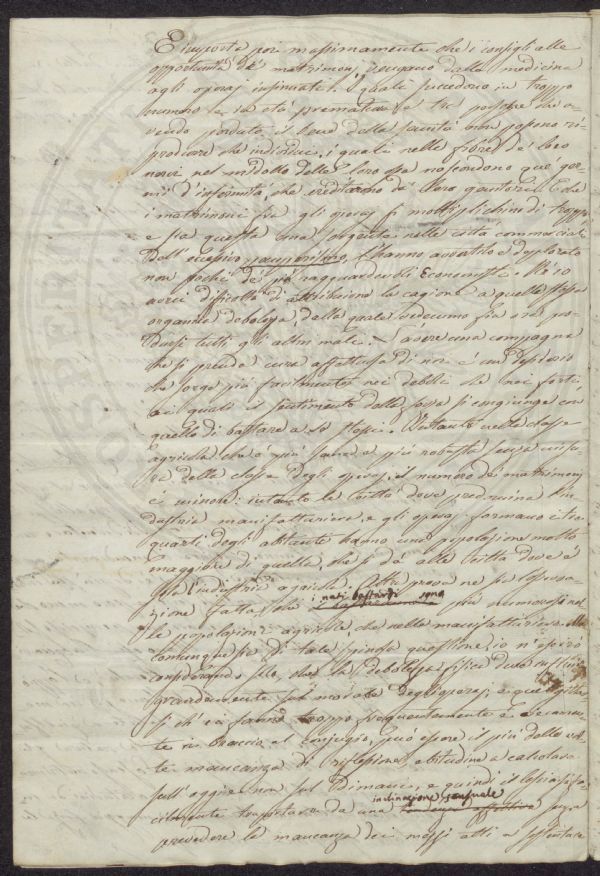 E importa poi massimamente che i consigli alle
opportunità de' matrimonj vengano dalla medicina
agli operaj insinuati: i quali succedono in troppo
numero e in età prematura e tra persone che a-
vendo perduto il bene della sanità non possono ri-
produrre che individui, i quali nelle fibre de' loro
nervi nel midollo delle loro ossa nascondono que' ger-
mi d'infermità, che ereditarono da' loro genitori. E che
i matrimoni fra gli operaj si moltiplichino di troppo
e sia questa una sorgente nelle città commerciali
dell'eccessivo pauperismo, l'hanno avvertito e deplorato
non pochi de' più ragguardevoli Economisti. Nè io
avrei difficoltà di attribuirne la cagione a quella stessa
organica debolezza, dalla quale vedemmo fin ora pro-
dursi tutti gli altri mali. L'avere una compagna
che si prenda cura affettuosa di noi è un desiderio
che sorge più facilmente nei deboli che nei forti,
ai quali il sentimento della forza si congiunge con
quello di bastare a se stessi. Intanto nella classe
agricola che è più sana e più robusta senza misu-
ra della classe degli operaj, il numero dei matrimonj
è minore: intanto le Città dove predomina l'in-
dustria manifatturiera, e gli operaj formano i tre
quarti degli abitanti hanno una popolazione molto
maggiore di quella, che si dà alle Città dove è
sola l'industria agricola. Altra prova ne sia l'osserva-
zione fatta, che i nati bastardi sono più numerosi nel-
le popolazioni agricole, che nelle manifatturiere. Ma
comunque sia di tale spinosa questione, io
considerando solo, che la debolezza fisica dee influire
grandemente sul morale degli operaj, e que' gittar-
si ch'essi fanno troppo frequentemente e ciecamen-
te in braccio al conjugio, può essere il più delle vol-
te mancanza di riflessione, abitudine a calcolare
sull'oggi e non sul dimani, e quindi il lasciarsi fa-
cilmente trasportare da una inclinazione sensuale senza
prevedere la mancanza dei mezzi atti a sostentare